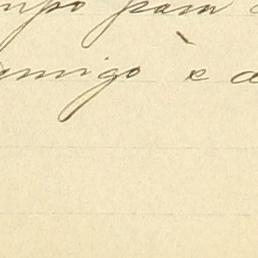 mpo para
omigo è a